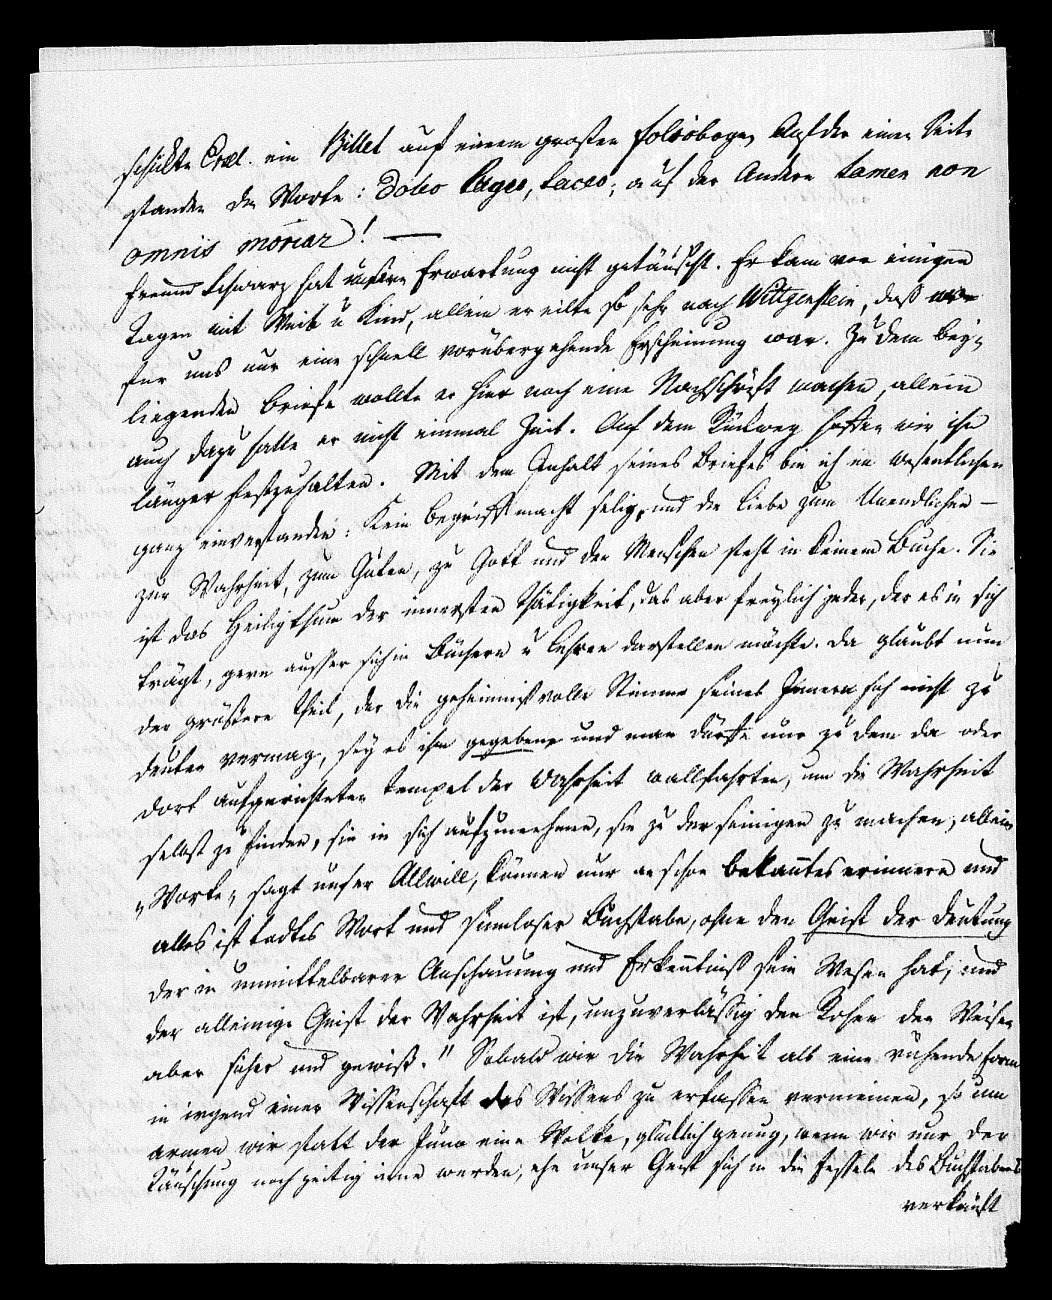 schickte Crel. ein Billet auf einem großen Foliobogen. Auf der einen Seite
standen die Worte: Doleo Luges, taceo; auf der Andern tamen non
omnis moriar! —
Freund Schwarz hat unsere Erwartung nicht getäuscht. Er kam vor einigen
Tagen mit Weib u Kind, allein er eilte so sehr nach Wittgenstein, daß
für uns nur eine schnell vorübergehende Erscheinung war. Zu dem bey-
liegenden Briefe wollte er hier noch eine Nachschrift machen, allein
auch dazu hatte er nicht einmal Zeit. Auf dem Rückweg hoffen wir ihn
länger festzuhalten. Mit dem Inhalt seines Briefes bin ich im wesentlichen
ganz einverstanden: Kein Begriff macht selig, und die Liebe zum Unendlichen –
zur Wahrheit, zum Guten, zu Gott und den Menschen steht in keinem Buche. Sie
ist das Heiligthum der innersten Thätigkeit, das aber freylich jeder, der es in sich
trägt, gern ausser sich in Büchern u Lehren darstellen möchte. Da glaubt nun
der größere Theil, der die geheimnißvolle Stimme seines Innern sich nicht zu
deuten vermag, sey es ihm gegeben und man dürfte nur zu dem da oder
dort aufgerichteten Tempel der Wahrheit wallfahrten, um die Wahrheit
selbst zu finden, sie in sich aufzunehmen, sie zu der seinigen zu machen; allein
„Worte„ sagt unser Allwill, können nur an schon bekanntes erinnern und
alles ist todtes Wort und sinnloser Buchstabe, ohne den Geist der Deutung
der in unmittelbarer Anschauung und Erkenntniß sein Wesen hat; und
der alleinige Geist der Wahrheit ist, unzuverlässig den Rohen den Weisen
aber sicher und gewiß." Sobald wir die Wahrheit als eine ruhende Form
in irgend einer Wissenschaft des Wissens zu erfassen vermeinen, so um
armen wir statt der Juno eine Wolke, glücklich genug, wenn wir nur der
Täuschung noch zeitig inne werden, ehe unser Geist sich in die Fesseln des Buchstabens
verkauft